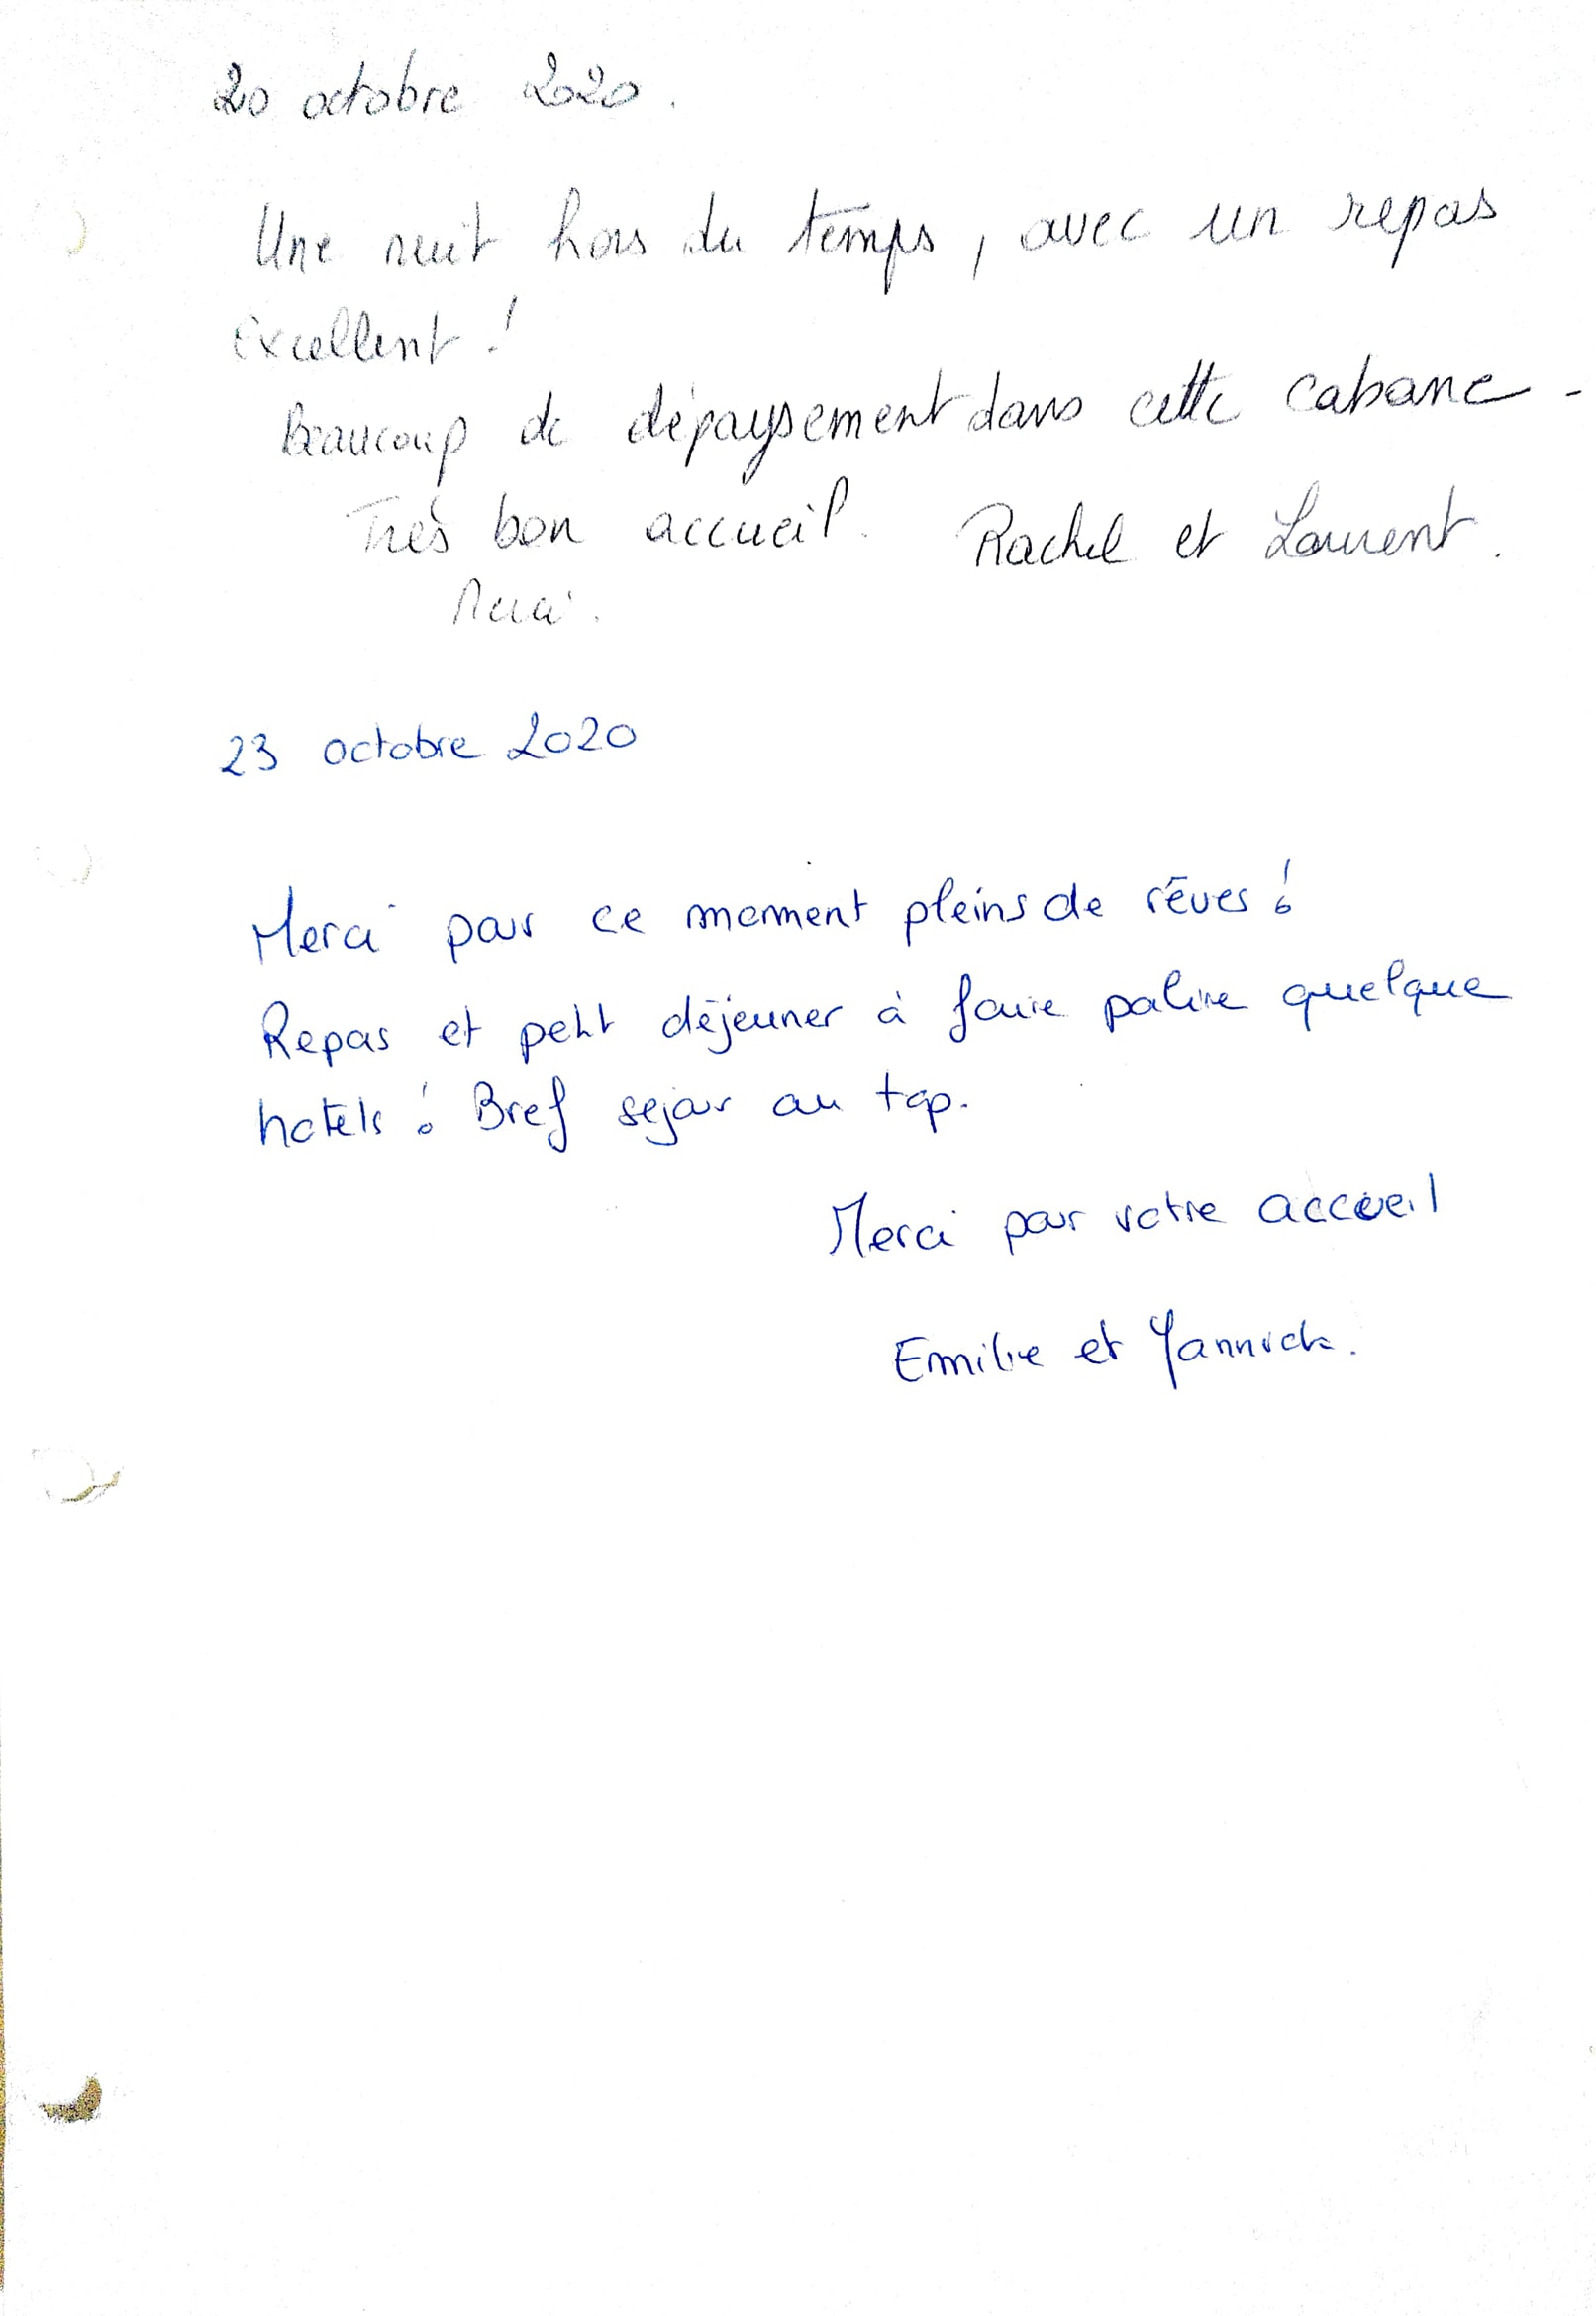 20 octobre 2020.
Une nuit hors du temps, avec un repas
excellent !
Beaucoup de dépaysement dans cette cabane -
Très bon accueil. Rachel et Laurent.
Merci.
23 octobre 2020
Merci pour ce moment pleins de rêves !
Repas et petit déjeuner à faire palire quelque
hotels ! Bref sejour au top.
Merci pour votre accueil
Emilie et Yannick.